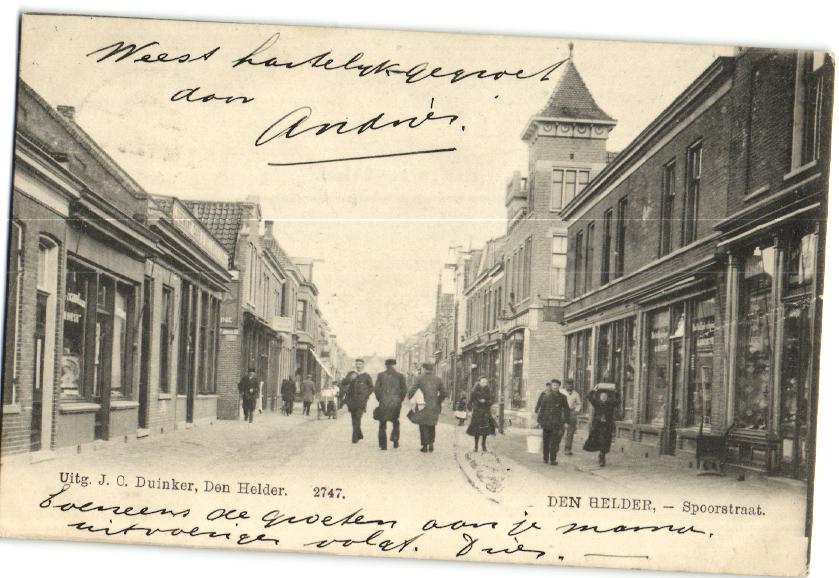 Weest hartelijk gegroet
door
Andriès.
Uitg. J. C. Duinker, Den Helder. 2747.
DEN HELDER, — Spoorstraat.
Eveneens de groeten aan je mama.
uitvoeriger volgt. Driès.